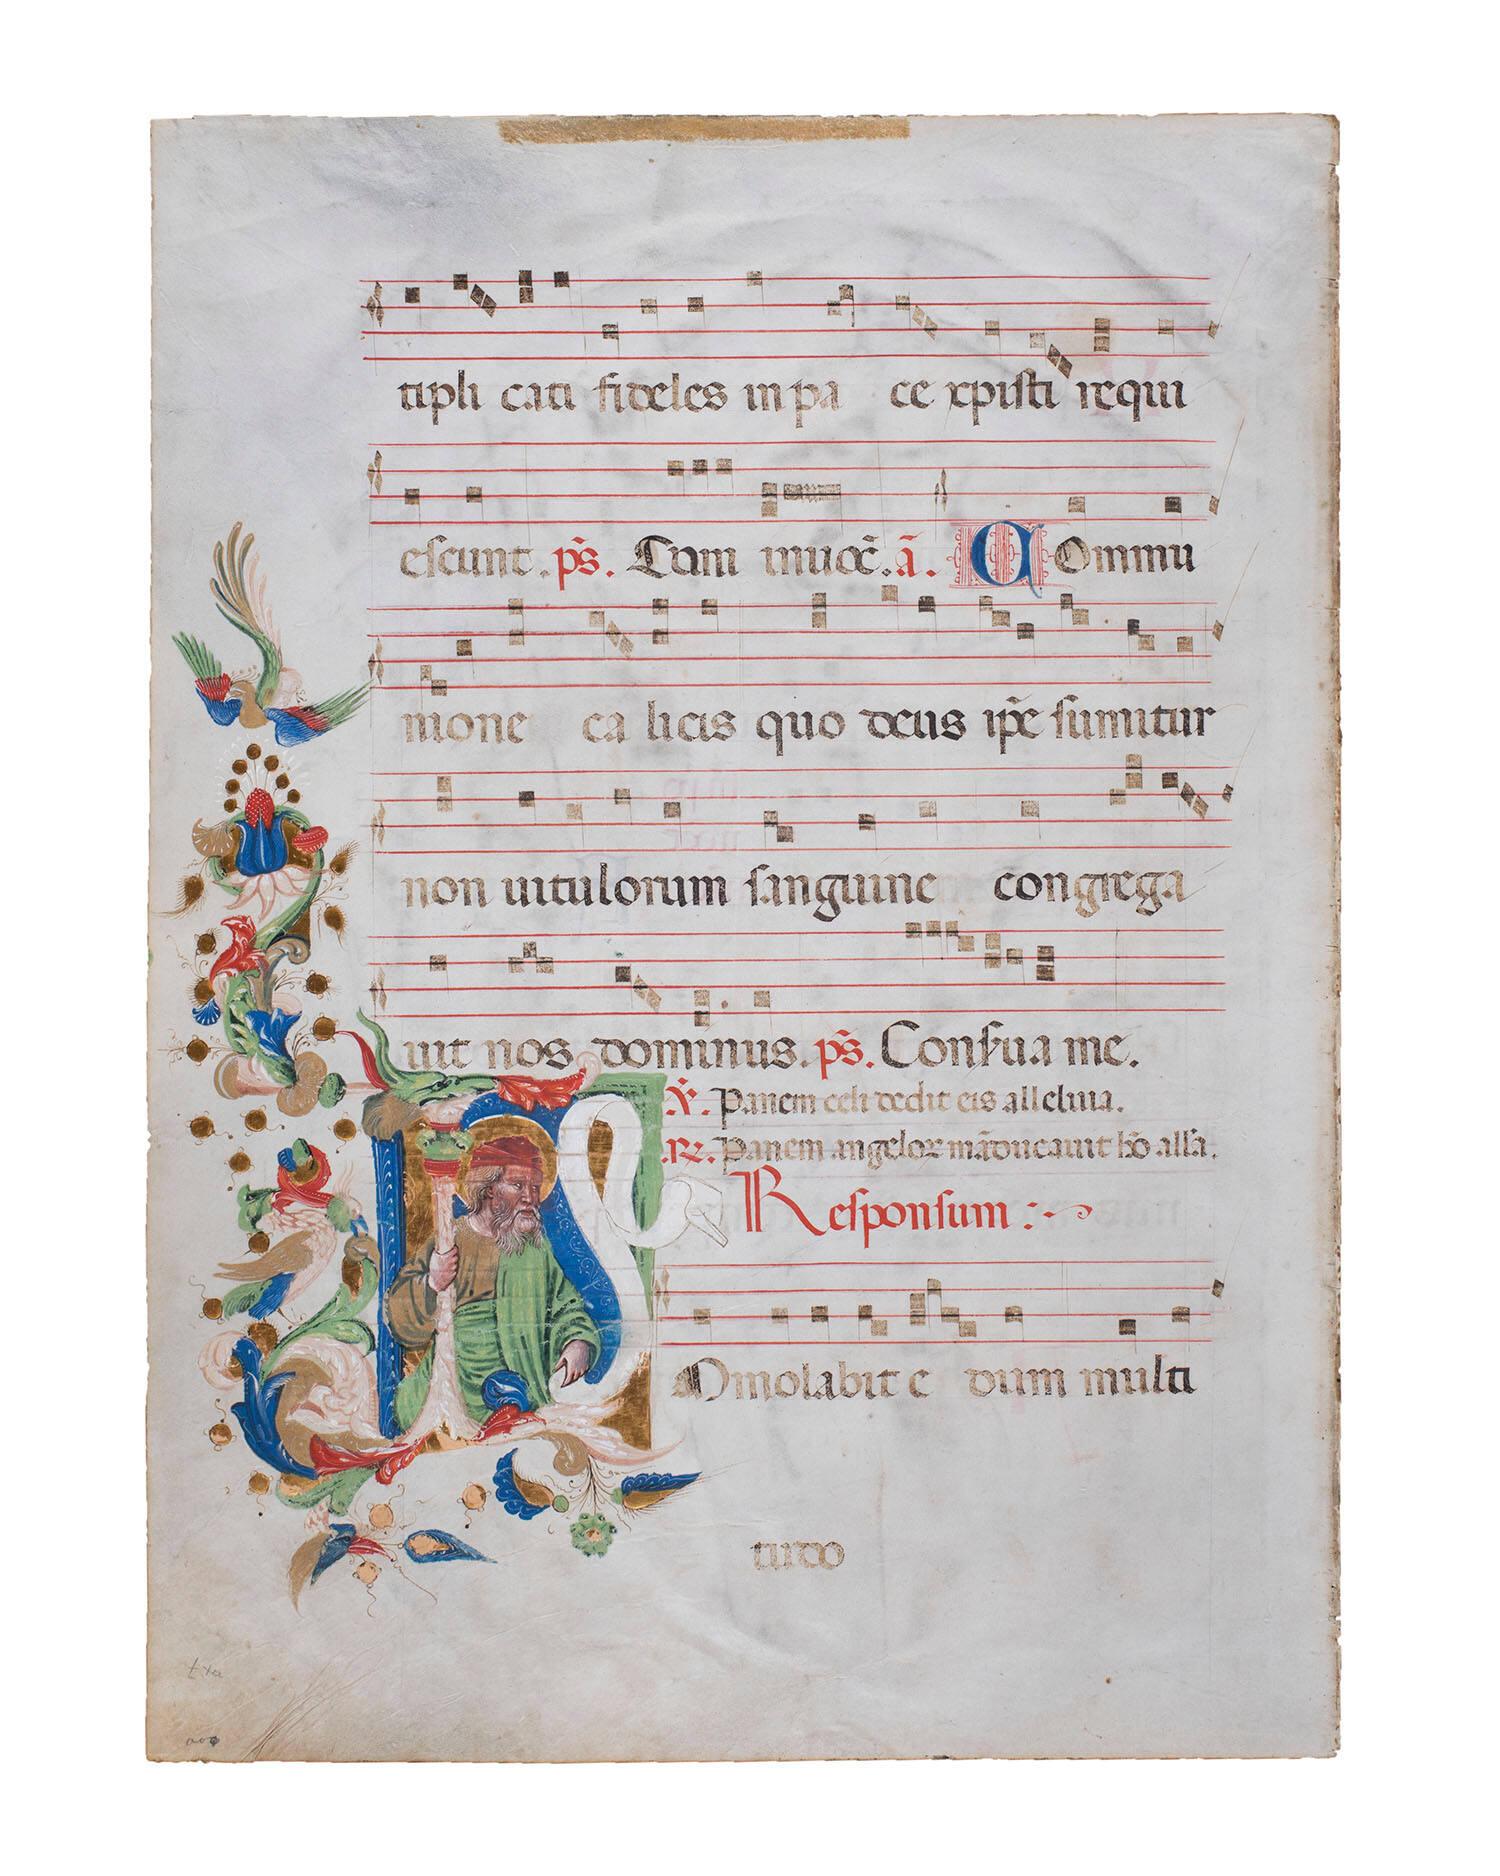 tipli cati fideles in pa ce xpisti requi
escunt. ps. Cum inuoc. a. COmmu
nione ca licis quo deus ipe sumitur
non uitulorum sanguine congrega
uit nos dominus. ps. Conserua me.
V. Panem celi dedit eis alleluia.
R. Panem angeloꝝ māducauit hō alla.
Responsum :~
Omolabit e dum multi
tudo